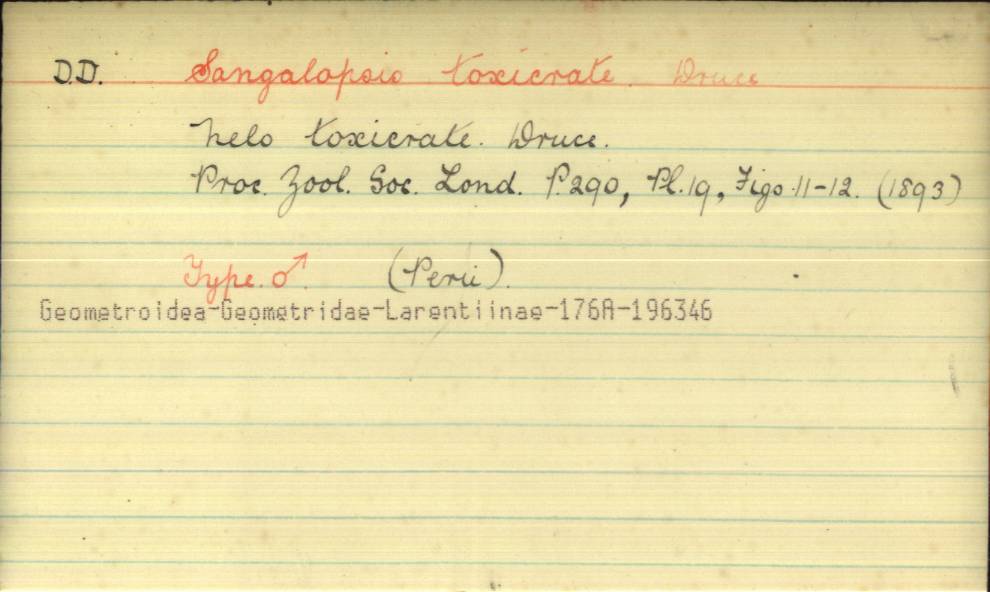 D.D. Sangalopsis toxicrate. Druce
Nelo toxicrate. Druce.
Proc. Zool. Soc. Lond. P.290, Pl.19, Figs.11-12. (1893)
Type. ♂. (Peru).
Geometroidea-Geometridae-Larentiinae-176A-196346